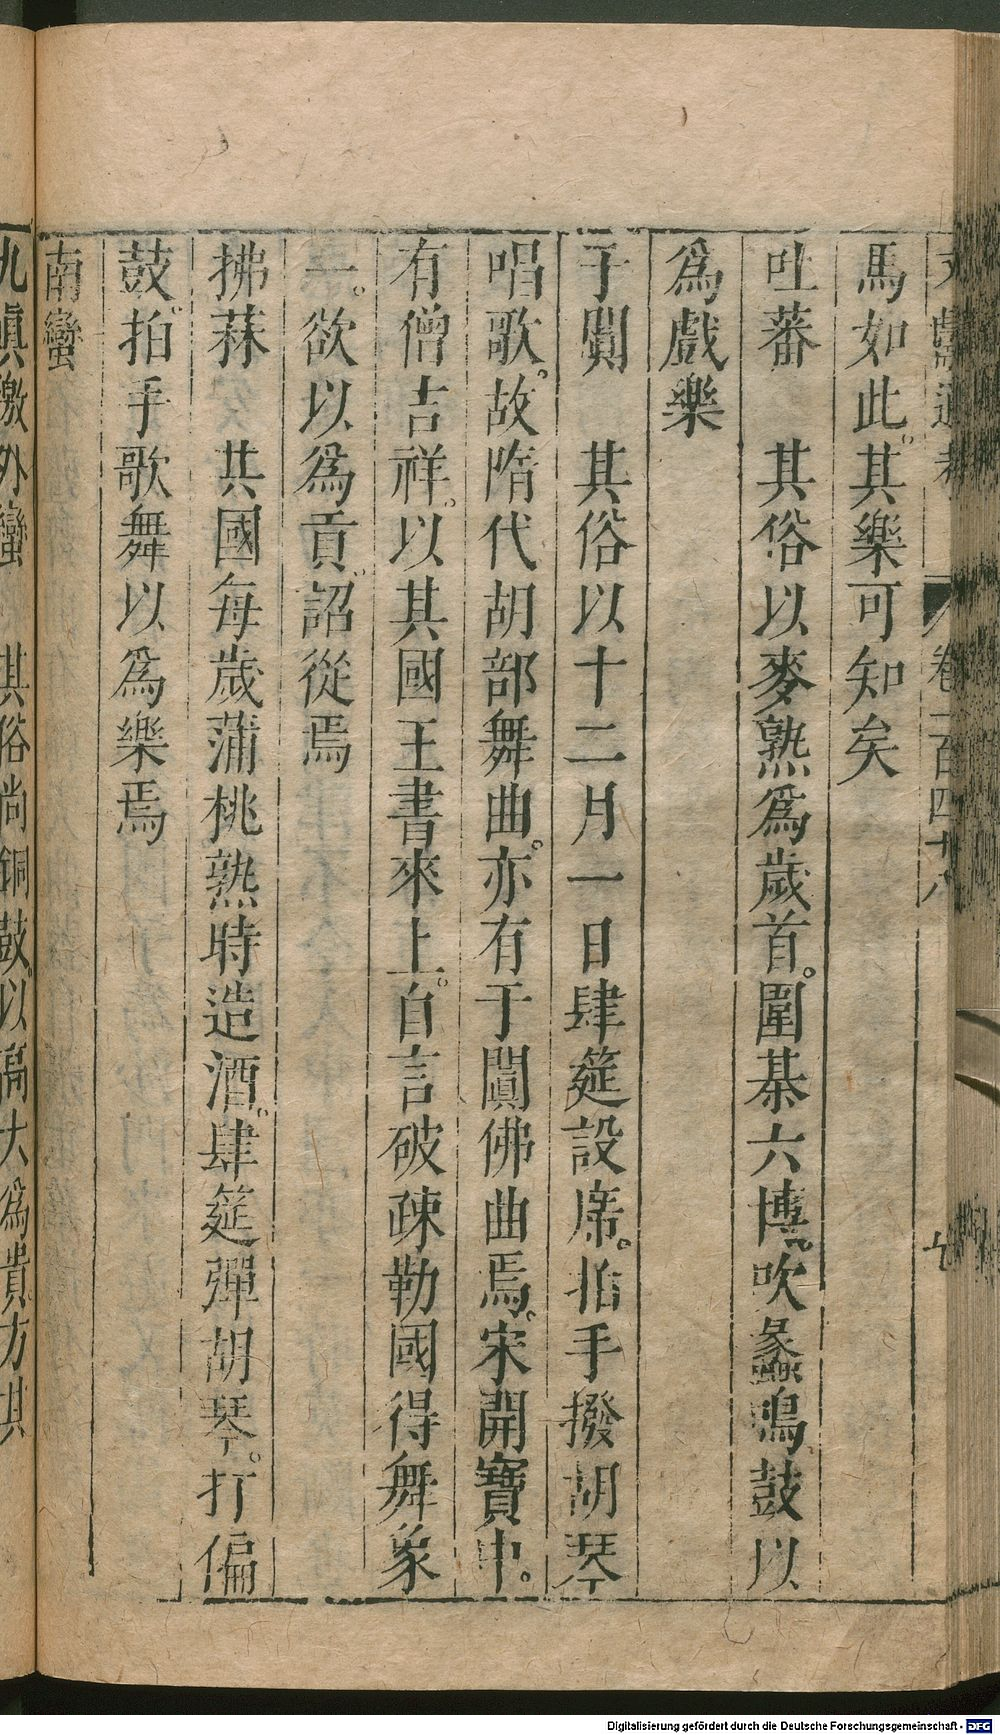 文獻通考 卷一百四十八 七
馬如此其樂可知矣
吐蕃 其俗以麥熟爲歲首。圍棊六博。吹蠡鳴鼓以
爲戲樂
于闐 其俗以十二月一日肆筵設席。拍手撥胡琴
唱歌。故隋代胡部舞曲。亦有于闐佛曲焉。宋開寶中。
有僧吉祥。以其國王書來上。自言破疎勒國得舞象
一。欲以爲貢。詔從焉
拂菻 其國每歲蒲桃熟時造酒。肆筵彈胡琴。打偏
鼓。拍手歌舞以爲樂焉
南蠻
九眞徼外蠻 其俗尚銅鼓。以高大爲貴方其
Digitalisierung gefördert durch die Deutsche Forschungsgemeinschaft - DFG